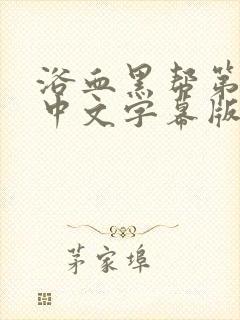 浴血黑帮第
中文字幕版
茅家埠